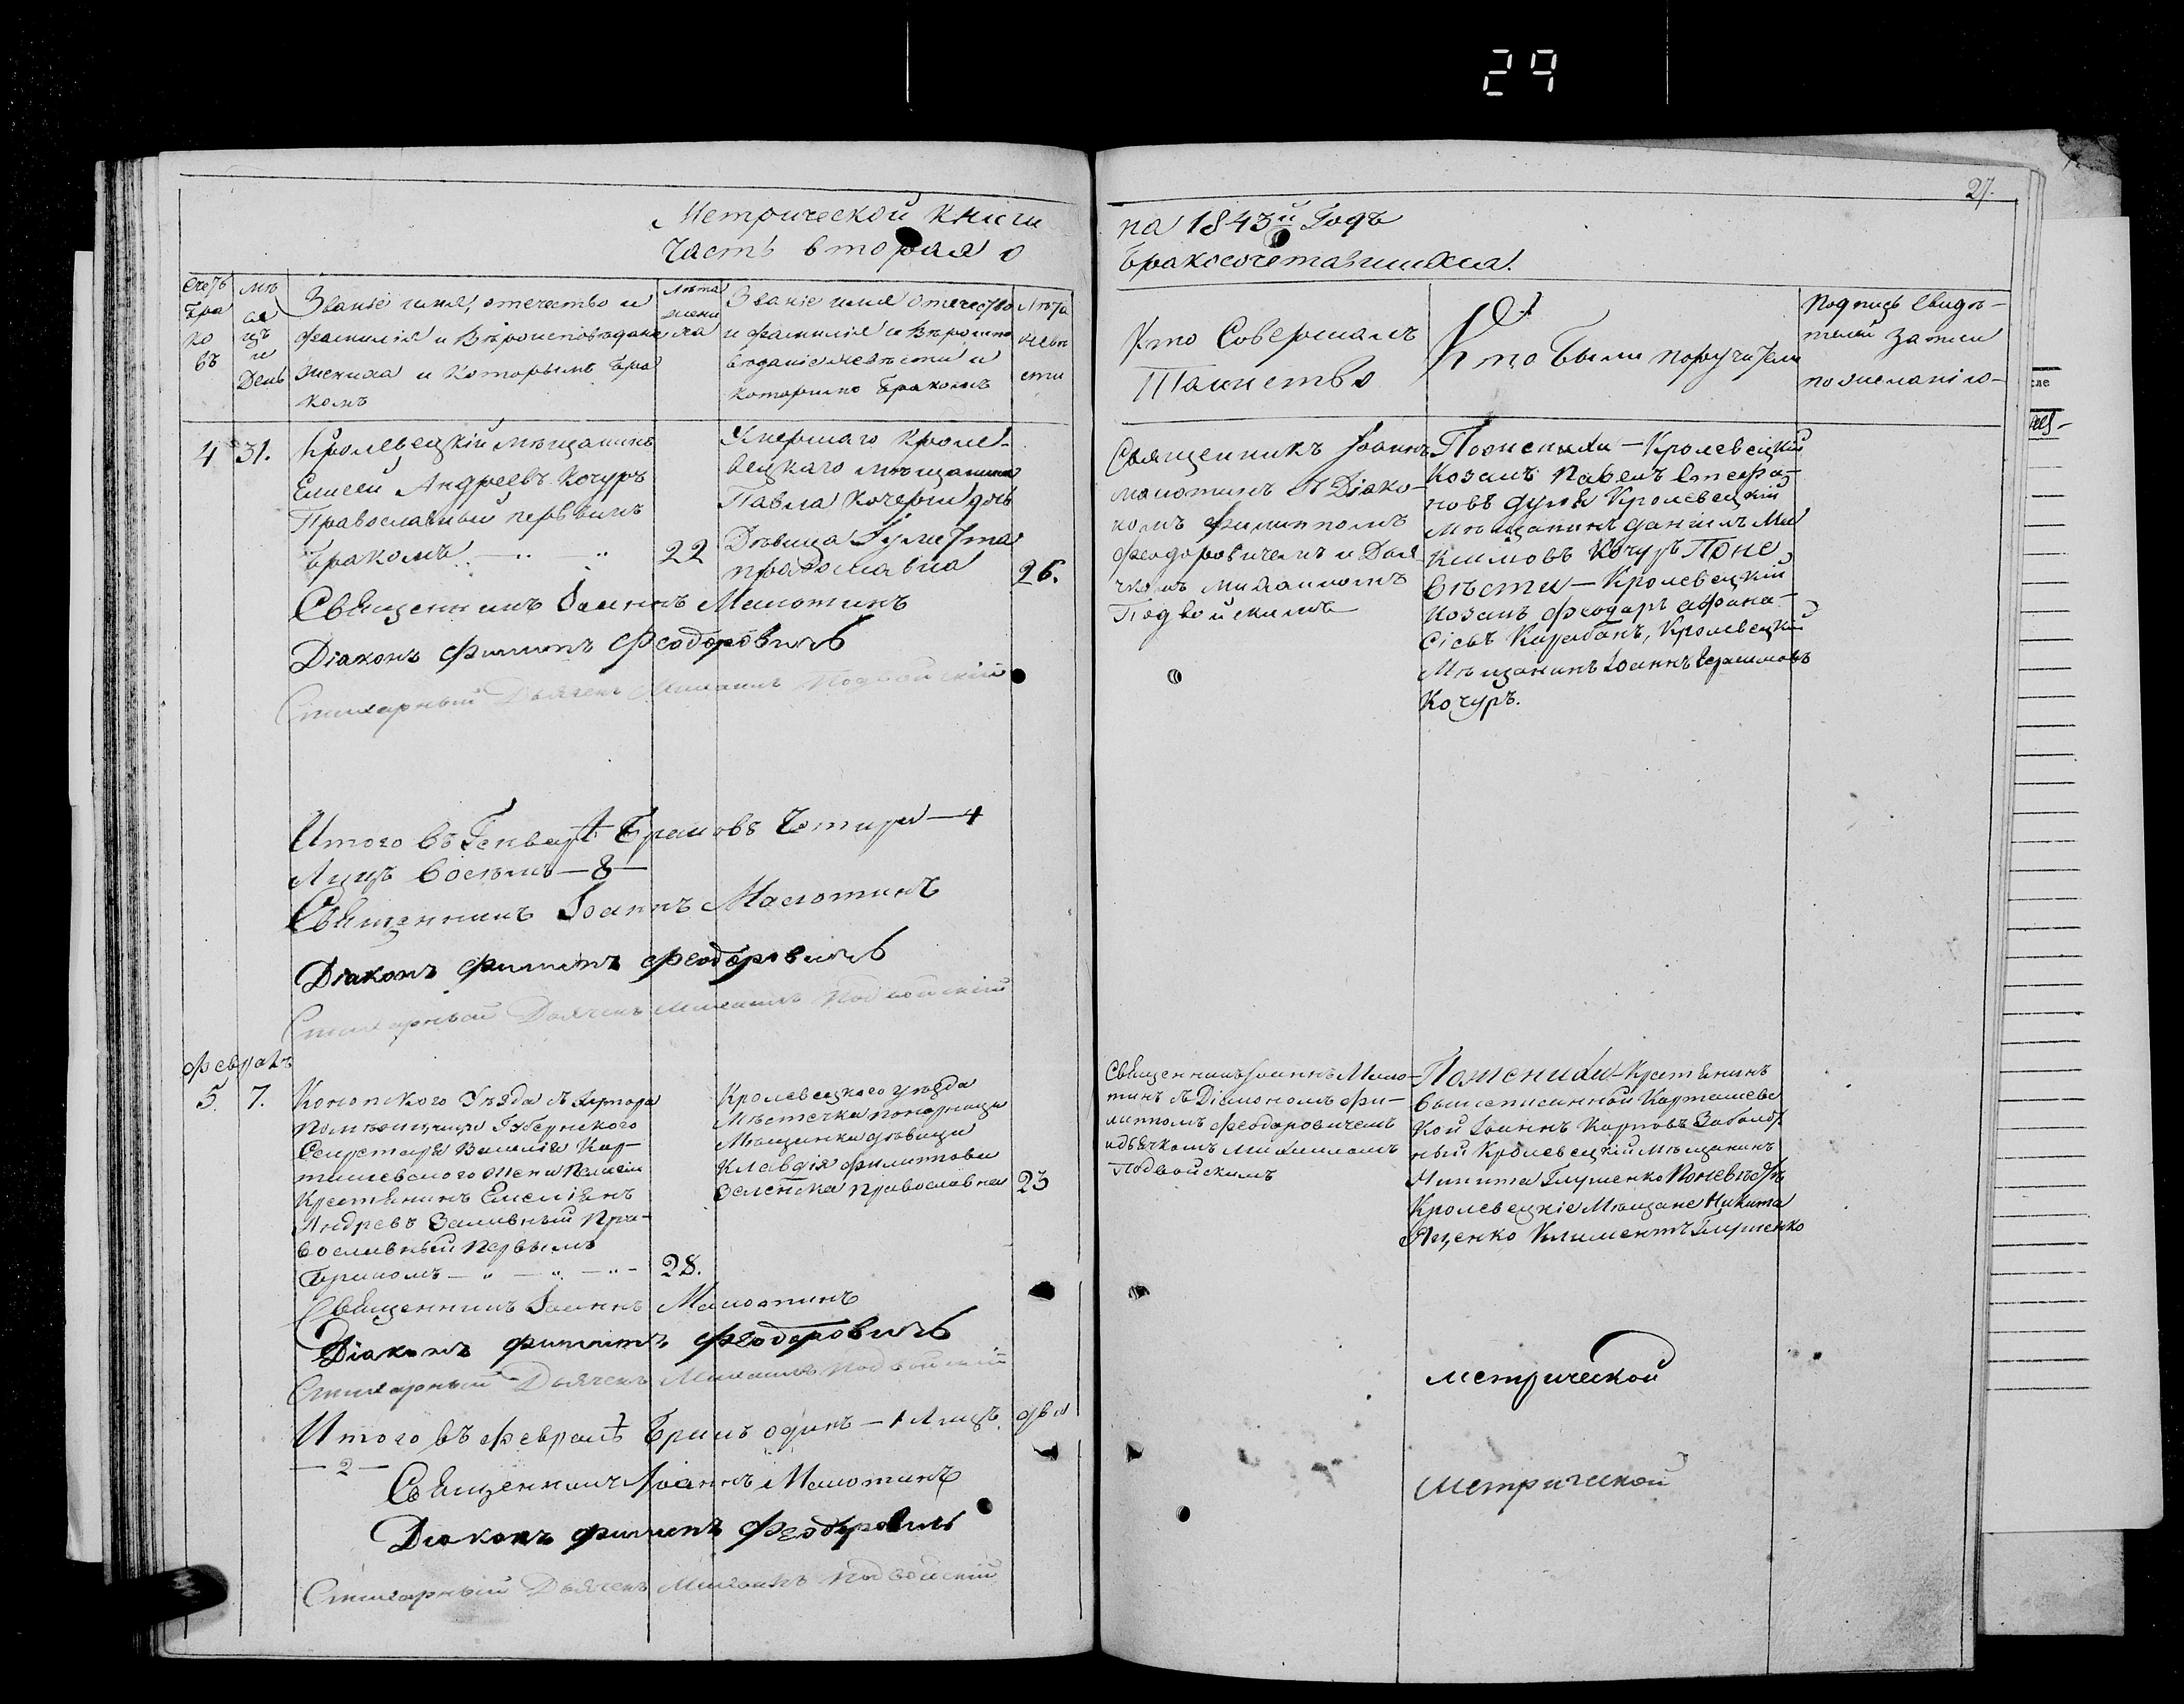 29
27.
Метрической книги
часть вторая о
на 1843й Годъ
Бракосочетавшихся.
Счетъ
бра
ко
въ
мѣ
ся
цъ
и
День
Званіе имя, отечество и
фамилія и Вѣроисповѣдание
жениха и которымъ бра
комъ
Лѣта
жени
ха
Званіе имя отечество
и фамилія и Вѣроиспо
вѣданіе невѣсти и
которымъ бракомъ
Лѣта
невѣ
сти
Кто Совершалъ
Таинство
Кто были поручители
Подпись свидѣ-
телей записи
по желанію
4
31.
Кролевецкій мѣщанинъ
Елисей Андреевъ Кочуръ
Православный первымъ
бракомъ
22
Умершаго кроле-
вецкаго мѣщанина
Павла Кочерги дочь
Дѣвица Гулиѣта
православна
26.
Священникъ Іоаннъ
Малотинъ съ Діако-
номъ Филиппомъ
Феодоровичемъ и Дья
чкомъ Михаиломъ
Подвойскимъ
По женихѣ — Кролевецкій
Козакъ Павелъ Стефа-
новъ Кролевецкій
Мѣщанинъ Даніилъ
Кочуръ По не
вѣсти — Кролевецкій
Козакъ Феодоръ Афана-
сіевъ Карабанъ, Кролевецкій
Мѣщанинъ Іоаннъ Герасимовъ
Кочуръ.
Священникъ Іоаннъ Малотинъ
Діаконъ Филиппъ Феодоровичъ
Стихарный Дьячекъ Михаилъ Подвойскій
Итого въ Генварѣ Браковъ Четыри — 4
Лицъ восемъ — 8 —
Священникъ Іоаннъ Малотинъ
Діаконъ Филиппъ Феодоровичъ
Стихарный Дьячекъ Михаилъ Подвойскій
Февраль
5.
7.
Конопского Уѣзда
помѣщицы Губернского
Секретаря Василія Кар-
ташевского жены
Крестянинъ Емеліянъ
Андреевъ Заливный Пра-
вославный Первымъ
Бракомъ
28.
Кролевецкого уѣзда
Мѣстечка понорници
Мѣщанка дѣвица
Клавдія Филиппова
Зеленска Православна
23
Священникъ Іоаннъ Мало-
тинъ съ Діакономъ Фи-
липпомъ Феодоровичемъ
и дьячкомъ Михаиломъ
Подвойскимъ
По женихѣ Крестянинъ
вышеписанной Карташевс
кой Іоаннъ Карповъ Заболот
ный Кролевецкій Мѣщанинъ
Никита Глушенко По невѣстѣ
Кролевецкіе Мѣщане Никита
Яценко Климентъ Глушенко
Священникъ Іоаннъ Малотинъ
Діаконъ Филиппъ Феодоровичъ
Стихарный Дьячекъ Михаилъ Подвойскій
метрической
Итого въ Февралѣ Бракъ одинъ — 1 Лицъ два
— 2 —
Священникъ Іоаннъ Малотинъ
метрической
Діаконъ Филиппъ Феодоровичъ
Стихарный Дьячекъ Михаилъ Подвойскій